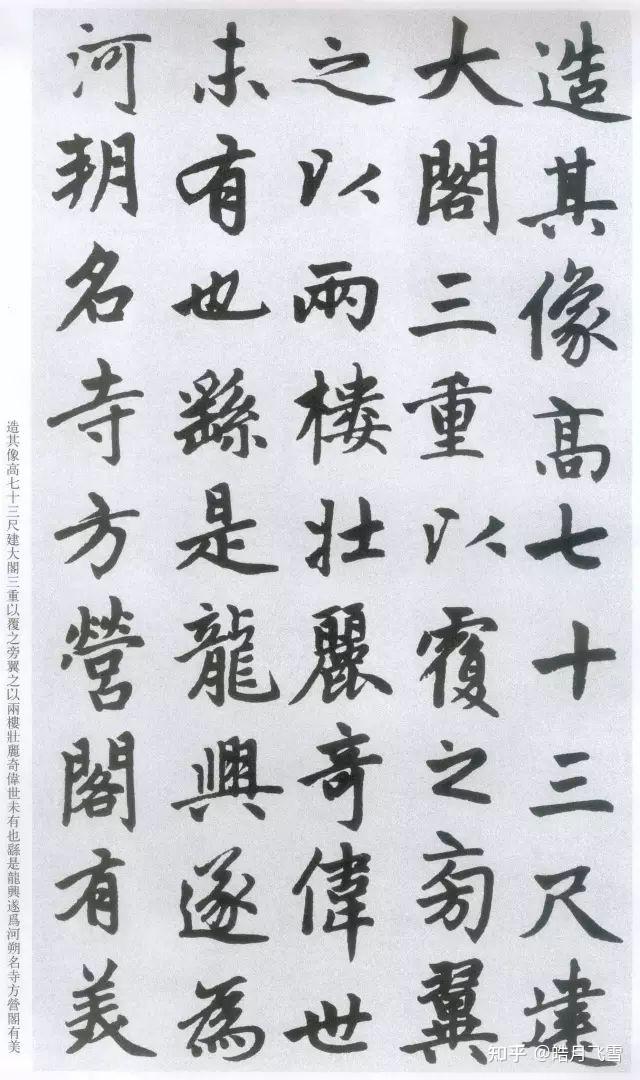 造其像高七十三尺建
大閣三重以覆之旁翼
之以兩樓壯麗奇偉世
未有也繇是龍興遂為
河朔名寺方營閣有美
造其像高七十三尺建大閣三重以覆之旁翼之以兩樓壯麗奇偉世未有也繇是龍興遂爲河朔名寺方營閣有美
知乎 @皓月飞雪